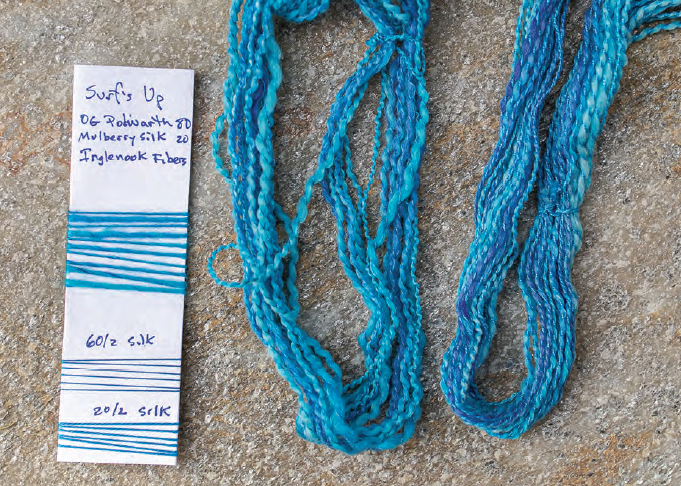 Surf's Up
OG Polwarth 80
Mulberry Silk 20
Inglenook Fibers
60/2 Silk
20/2 Silk